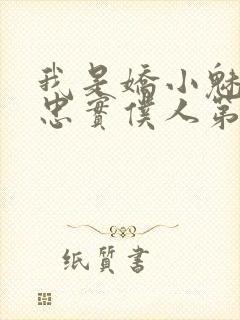 我是嬌小魅
忠實僕人第
纸質書